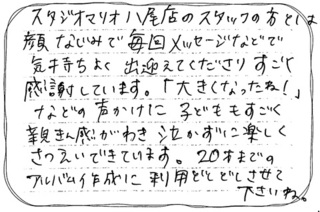 スタジオマリオ八尾店のスタッフの方とは
顔なじみで毎回メッセージなどで
気持ちよく出迎えてくださりすごく
感謝しています。「大きくなったね!」
などの声かけに子どももすごく
親きん感がわき泣かずに楽しく
さつえいできています。20才までの
アルバム作成に利用どしどしさせて
下さいね。